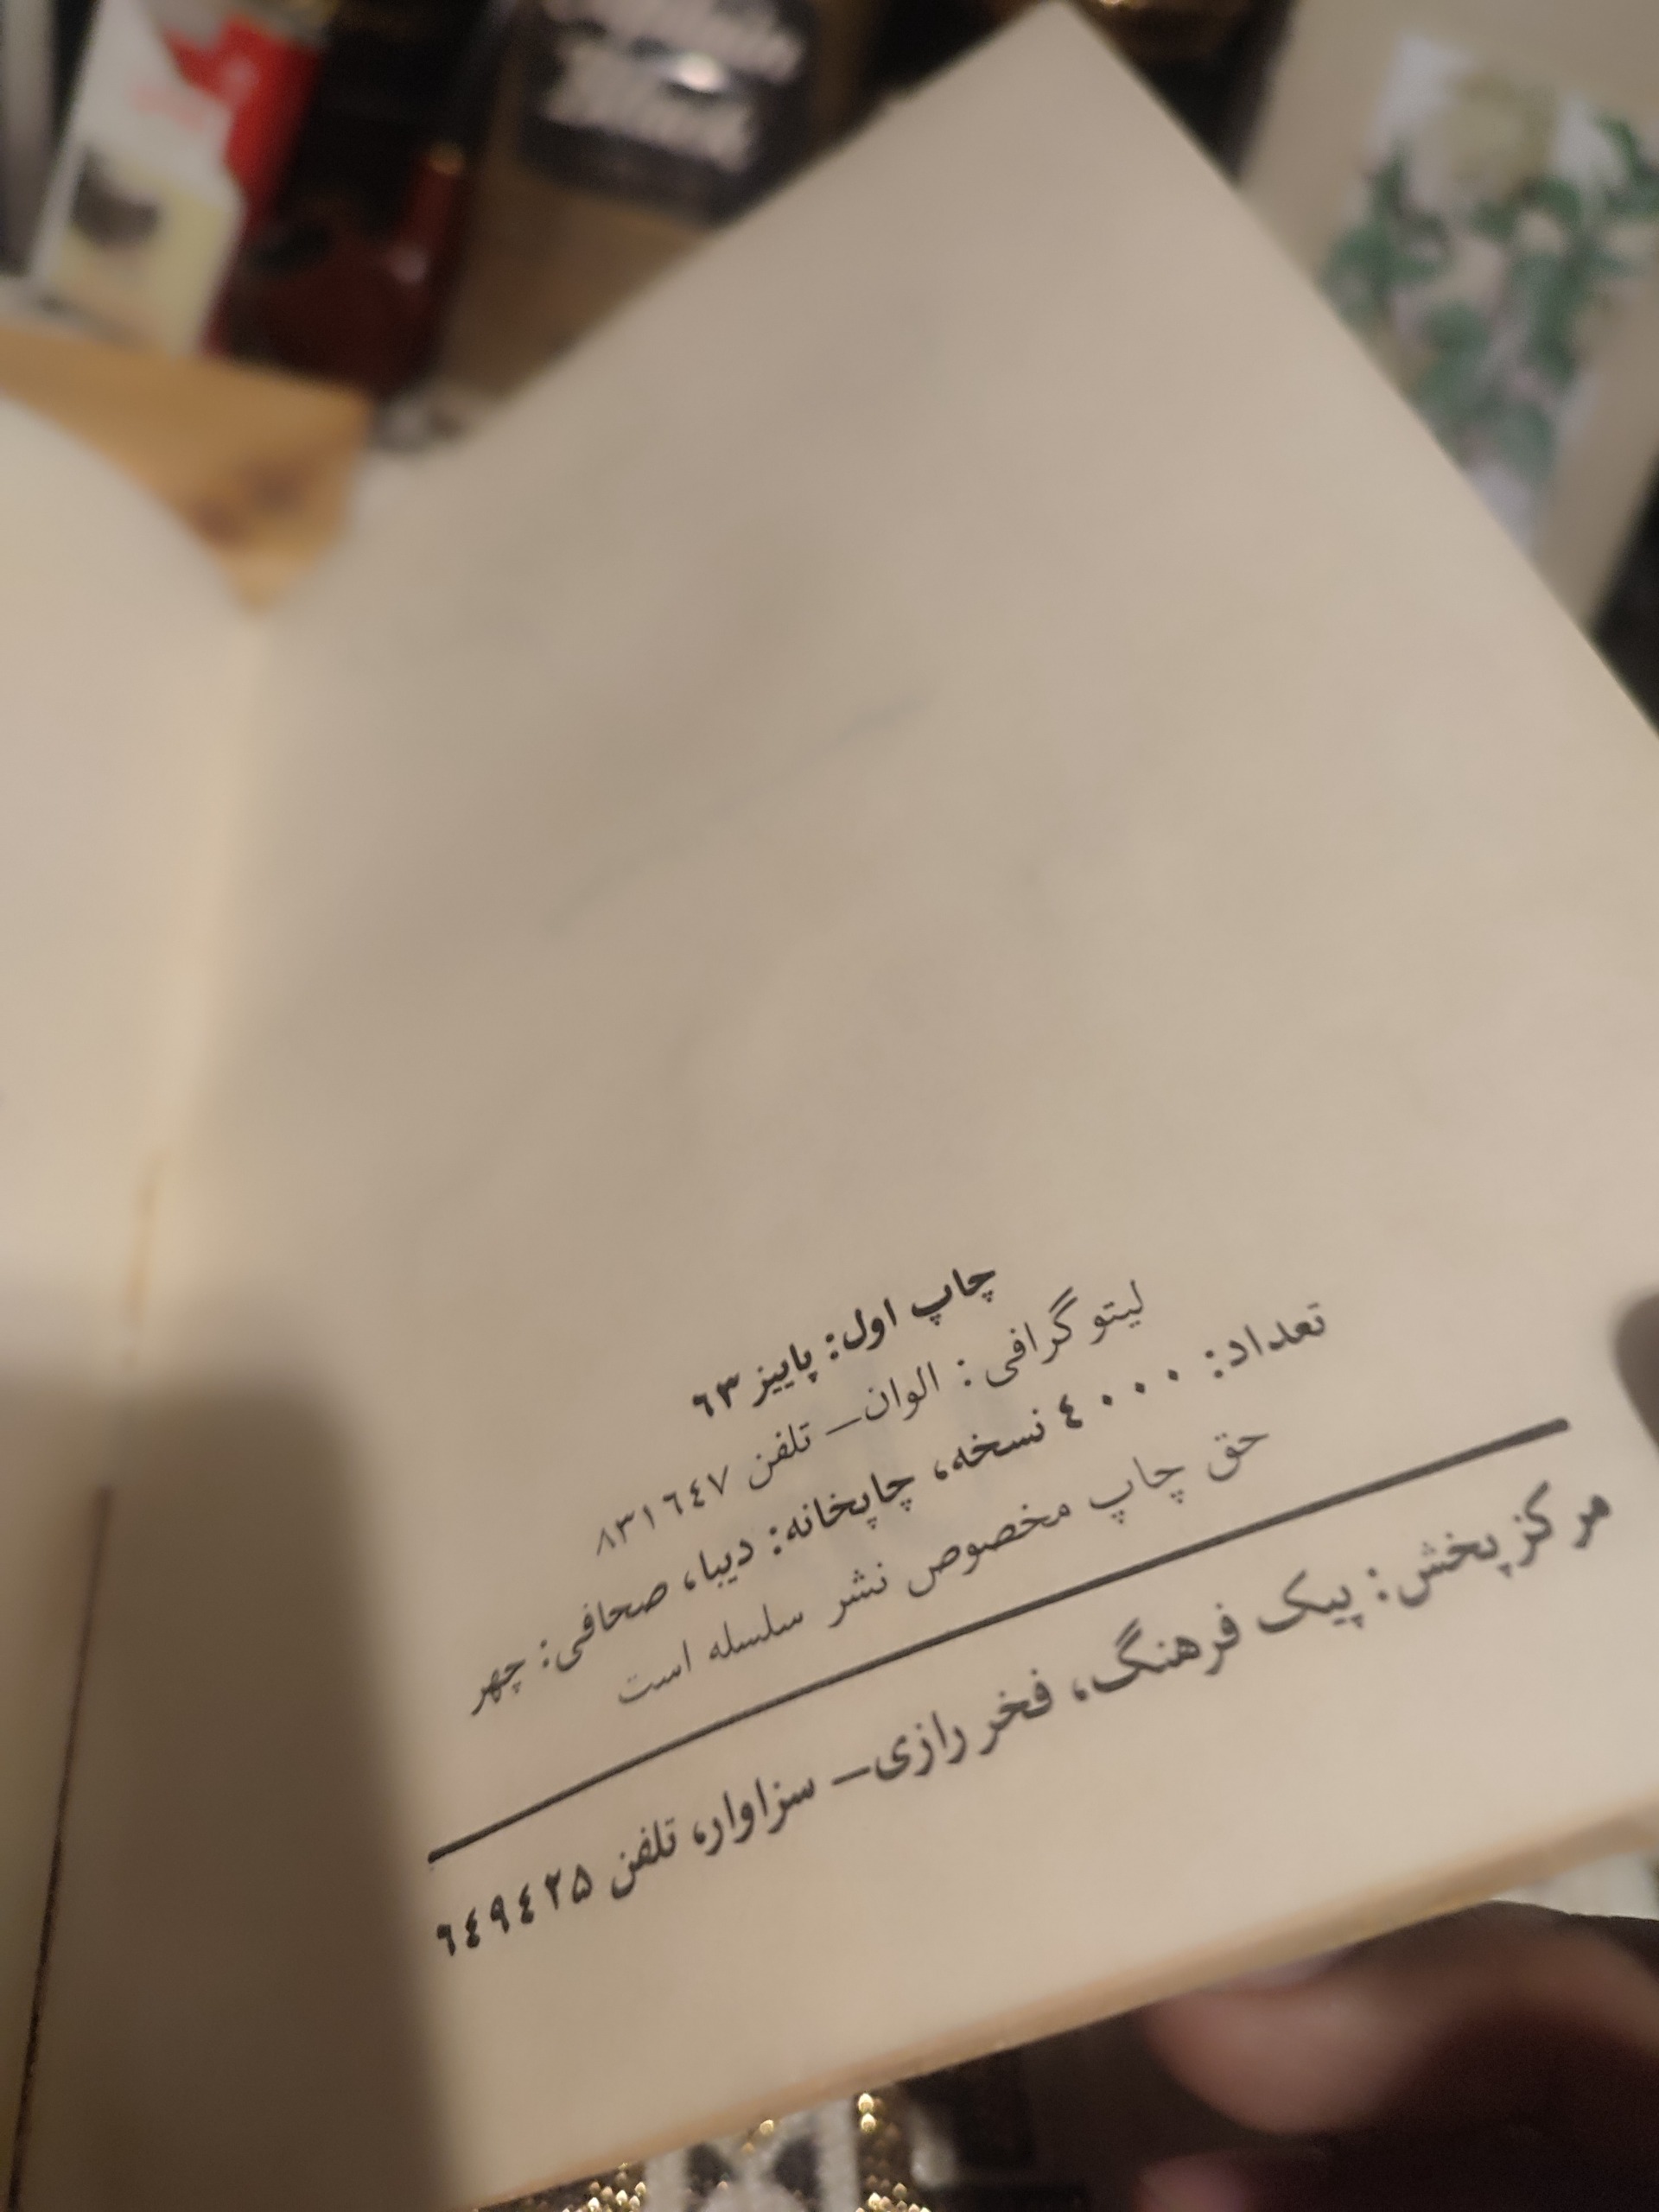 چاپ اول: پاییز ٦٣
لیتوگرافی: الوان– تلفن ٨٣١٦٤٧
تعداد: ٤٠٠٠ نسخه، چاپخانه: دیبا، صحافی: چهر
حق چاپ مخصوص نشر سلسله است
مرکز پخش: پیک فرهنگ، فخر رازی– سزاوار، تلفن ٦٤٩٤٢۵
Black